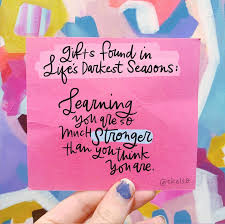 gifts found in
Life's Darkest Seasons:
Learning
you are so
much Stronger
than you think
you are.